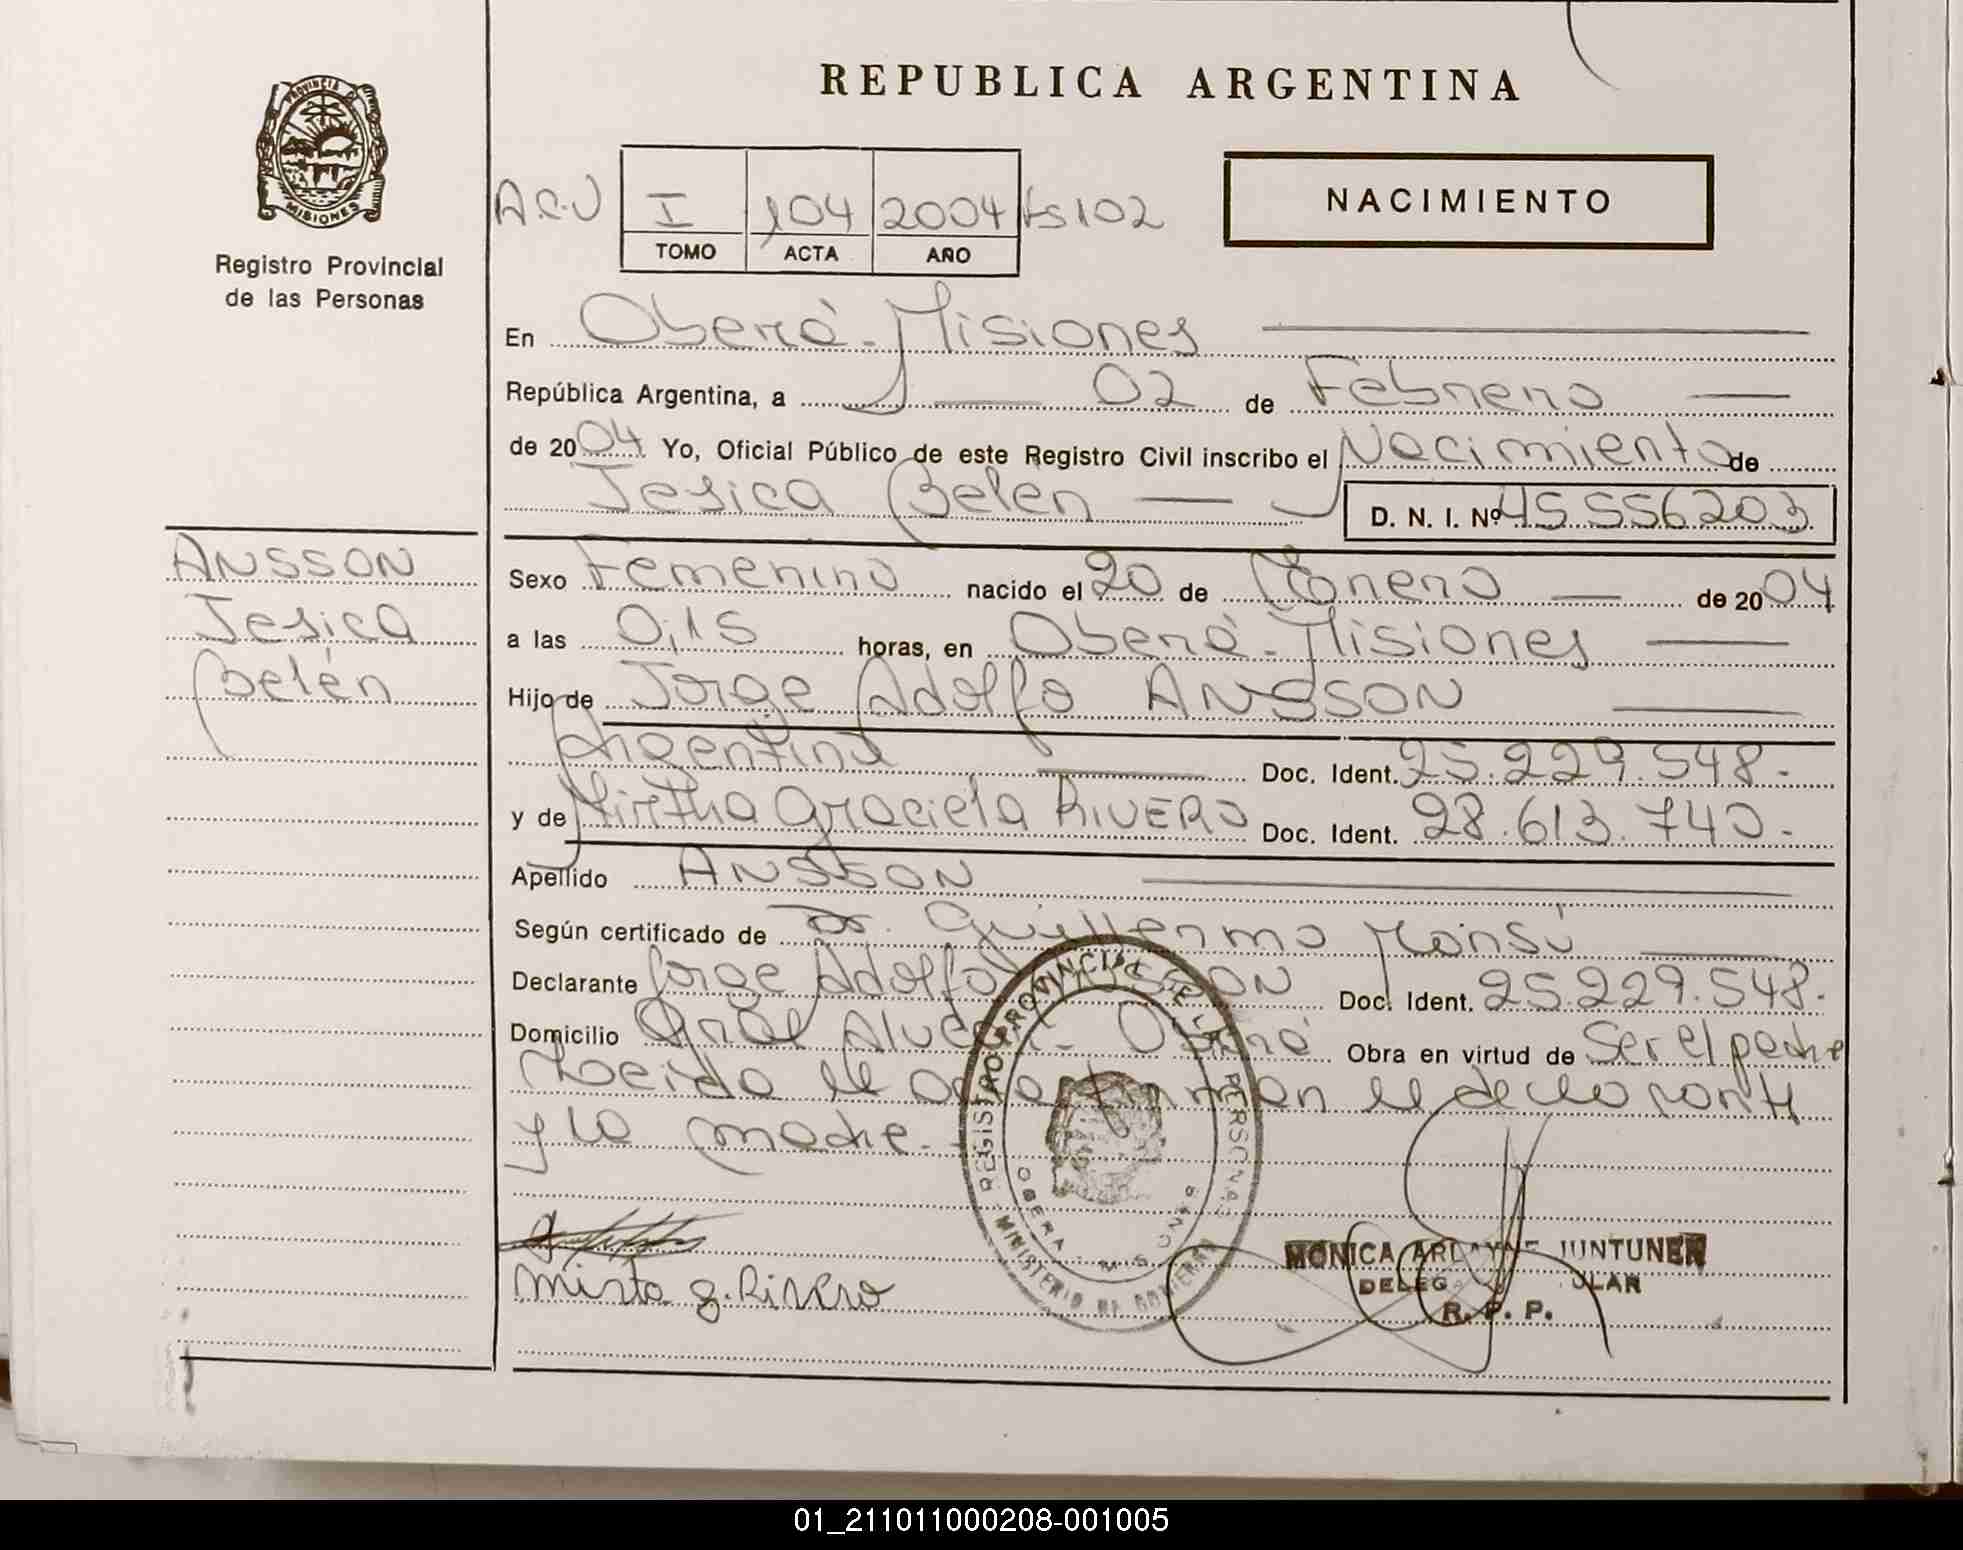 REPUBLICA ARGENTINA
PROVINCIA DE
MISIONES
Registro Provincial
de las Personas
A.C.U I 104 2004 Fs 102
TOMO ACTA AÑO
NACIMIENTO
En Oberá - Misiones
República Argentina, a 02 de Febrero
de 2004 Yo, Oficial Público de este Registro Civil inscribo el Nacimiento de
Jesica Belén D. N. I. Nº 45.556203
ANSSON
Jesica
Belén
Sexo Femenino nacido el 20 de Enero de 2004
a las 0,15 horas, en Oberá - Misiones
Hijo de Jorge Adolfo ANSSON
Argentina Doc. Ident. 25.229.548.-
y de Mirtha Graciela RIVERO Doc. Ident. 28.613.740.-
Apellido ANSSON
Según certificado de Dr. Guillermo Monsú
Declarante Jorge Adolfo ANSSON Doc. Ident. 25.229.548.-
Domicilio Gral Alvear - Oberá Obra en virtud de Ser el padre
Leida el acta firman el declarante
y la madre.-
REGISTRO PROVINCIAL DE LAS PERSONAS
MINISTERIO DE GOBIERNO
OBERA
Mirta g. Rivero
MONICA JUNTUNEN
R. P. P.
01_211011000208-001005